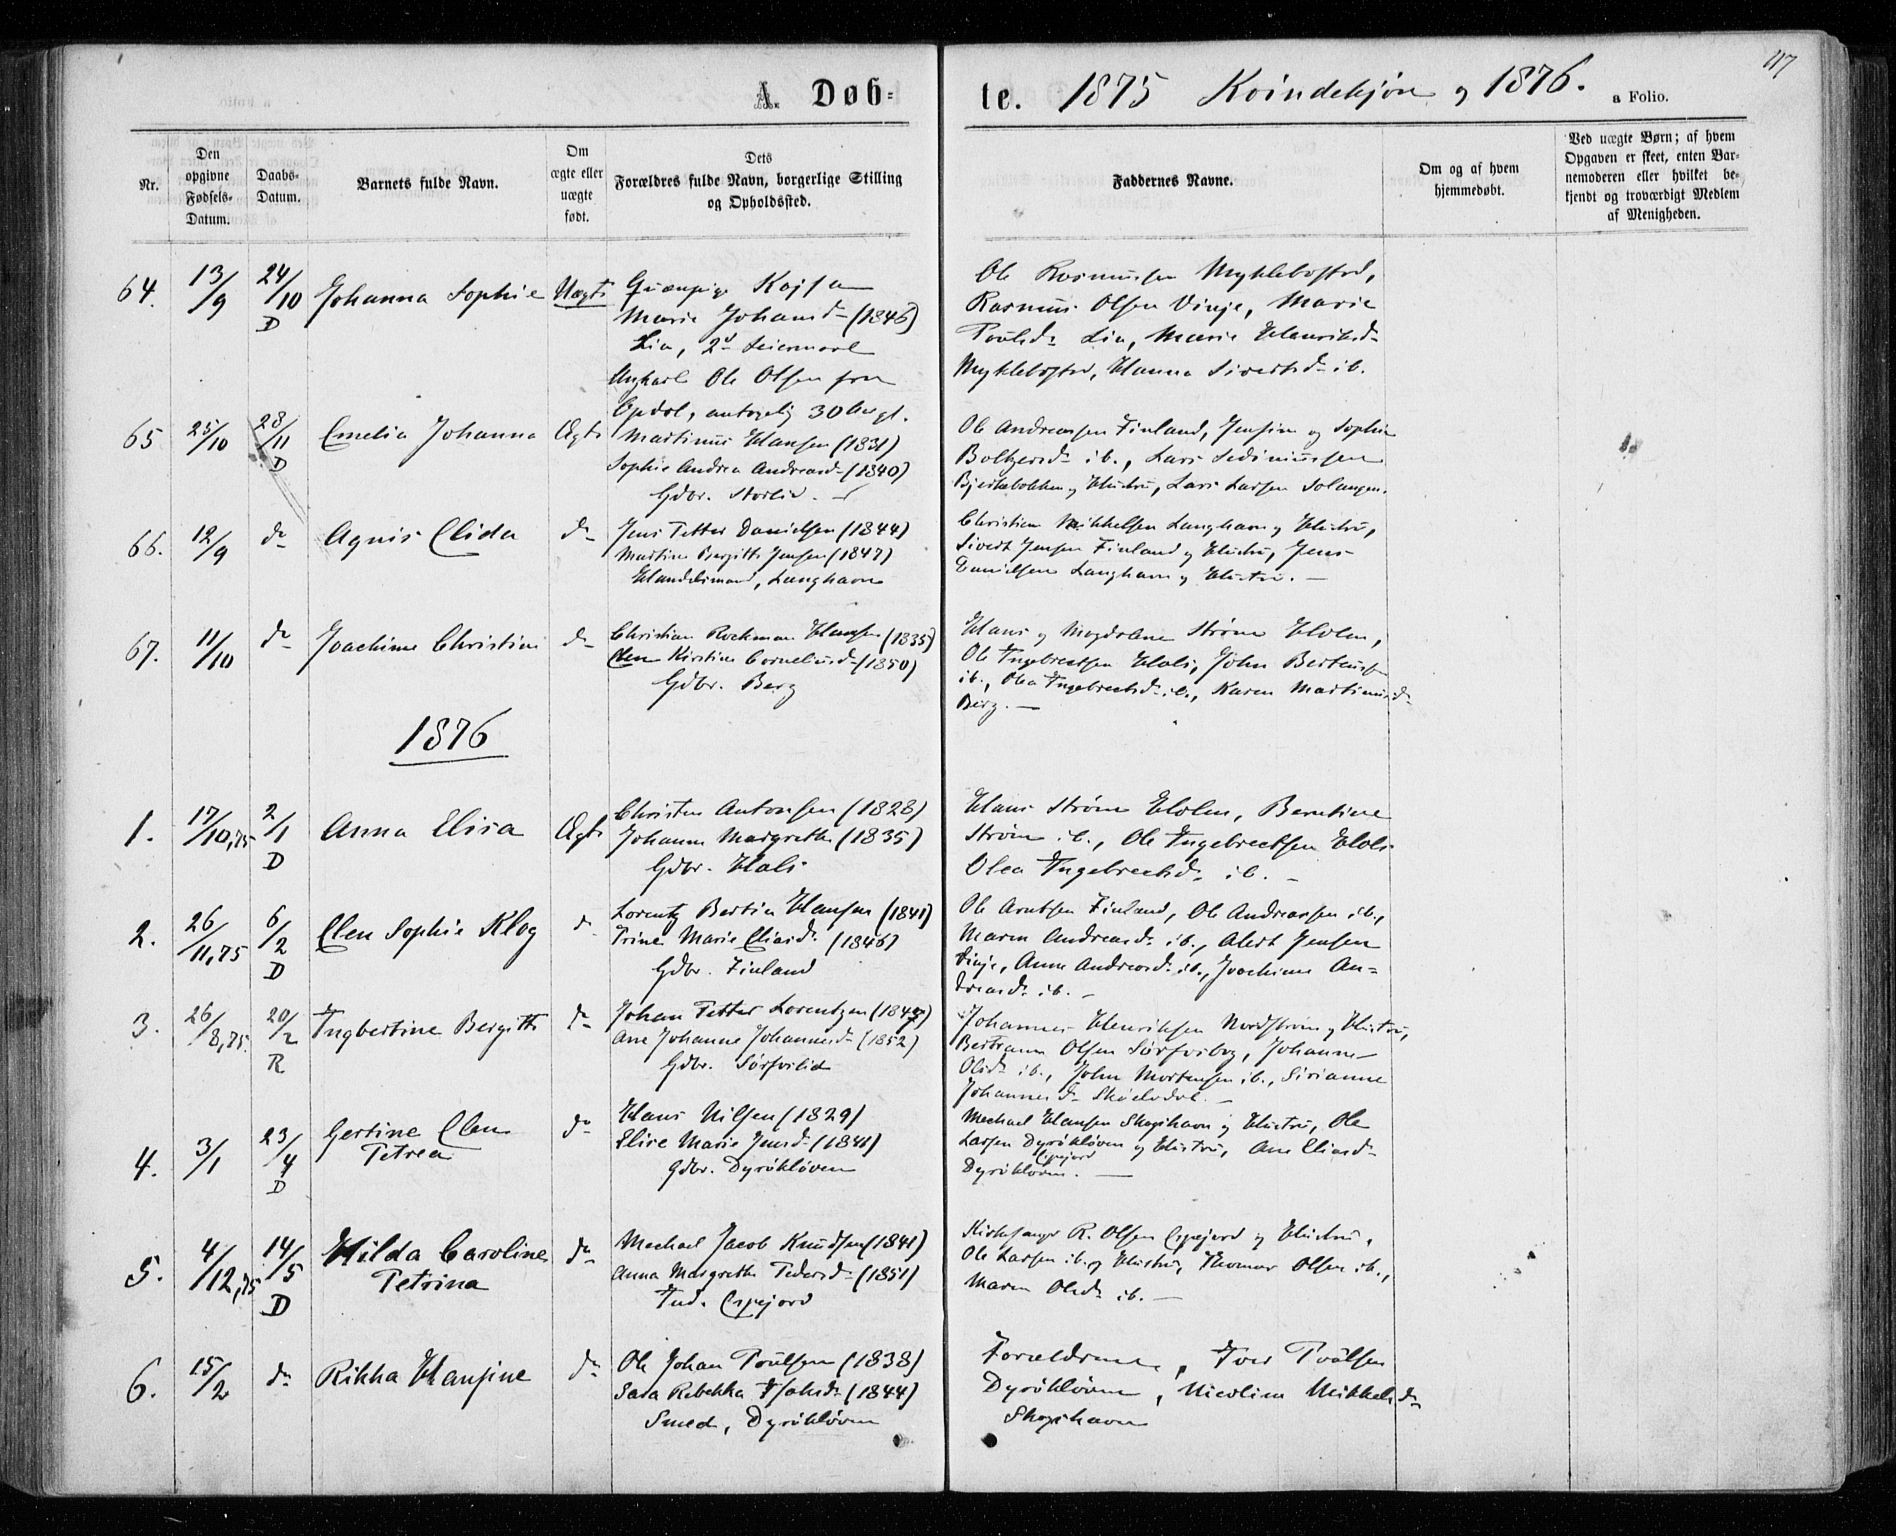 117
A. Døb- te. 1875 Kvindekjøn og 1876. a Folio.
Nr.
Den opgivne Fødsels-Datum.
Daabs-Datum.
Barnets fulde Navn.
Om ægte eller uægte født.
Dets Forældres fulde Navn, borgerlige Stilling og Opholdssted.
Faddernes Navne.
Om og af hvem hjemmedøbt.
Ved uægte Børn; af hvem Opgaven er skeet, enten Barnemoderen eller hvilket bekjendt og troværdigt Medlem af Menigheden.
64. 13/9 24/10 D Johanna Sophie Uægte
Qvænpige Kajsa
Marie Johansd. (1846)
Lia, 2d Leiermaal
Ungkarl Ole Olsen fra
Opdal, antagelig 30 Aar gl.
Ole Rasmussen Myklebostad,
Rasmus Olsen Vinje, Marie
Poulsd. Lia, Marie Henriksd.
Myklebostad, Hanna Sivertsd. ib.
65 25/10 28/11 D Emelia Johanna Ægte
Martinus Hansen (1831)
Sophie Andrea Andreasd. (1840)
Gdbr. Storlid.
Ole Andreassen Finland, Jensine og Sophie
Boltzersd. ib., Lars Sediniussen
Bjerkebakken og Hustru, Lars Larsen Solangen.
66. 12/9 do Agnis Elida do
Jens Petter Danielsen (1844)
Martine Bergitte Jensen (1847)
Handelsmand, Langhavn
Christian Mikkelsen Langhavn og Hustru,
Sivert Jensen Finland og Hustru, Jens
Danielsen Langhavn og Hustru.
67. 11/10 do Joachime Christine do
Christian Rockman Hansen (1835)
Elen Kirstine Corneliusd. (1850)
Gdbr. Berg
Hans og Magdalene Strøm Holen,
Ole Ingebrectsen Hals, John Berteussen
ib., Olea Ingebrectsd. ib., Karen Martinusd.
Berg.
1876
1. 17/10,75 2/1 D Anna Elisa Ægte
Christen Antonsen (1828)
Johanna Margrethe (1835)
Gdbr. Hals
Hans Strøm Holen, Berntine
Strøm ib., Ole Ingebrectsen Hals
Olea Ingebrectsd. ib.
2. 26/11,75 6/2 D Elen Sophie Klog do
Lorentz Bertin Hansen (1841)
Trine Marie Eliasd. (1846)
Gdbr. Finland
Ole Arntsen Finland, Ole Andreassen ib.,
Maren Andreasd. ib., Alert Jensen
Vinje, Anne Andreasd. ib., Joachime An-
dreasd. ib.
3. 26/8,75. 20/2 R Ingbertine Bergitte do
Johan Petter Lorentzen (1847)
Ane Johanne Johannesd. (1852)
Gdbr. Sørfvelid
Johannes Henriksen Nordstrøm og Hustru,
Bertram Olsen Sørfosbog, Johanne
Olsd. ib., John Mortensen ib., Sirianne
Johannesd. Skøelvdal.
4. 3/1 23/4 D Gertine Elen Petrea do
Hans Nilsen (1829)
Elise Marie Jensd. (1841)
Gdbr. Dyrøkløven
Mechael Hansen Skogshavn og Hustru, Ole
Larsen Dyrøkløven og Hustru, Ane Eliasd.
Espejord
Dyrøkløven.
5. 4/12,75 14/5 D Hilda Caroline Petrina do
Mechael Jacob Knudsen (1841)
Anna Margrethe Pedersd. (1851)
Ind. Espejord
Kirkesanger R. Olsen Espejord og Hustru,
Ole Larsen ib. og Hustru, Thomas Olsen ib.,
Maren Olsd. ib.
6. 15/2 do Rikka Hansine do
Ole Johan Poulsen (1838)
Sara Rebekka Isaksd. (1844)
Smed, Dyrøkløven
Forældrene, Iver Poulsen
Dyrøkløven, Nicoline Mikkelsd.
Skogshavn